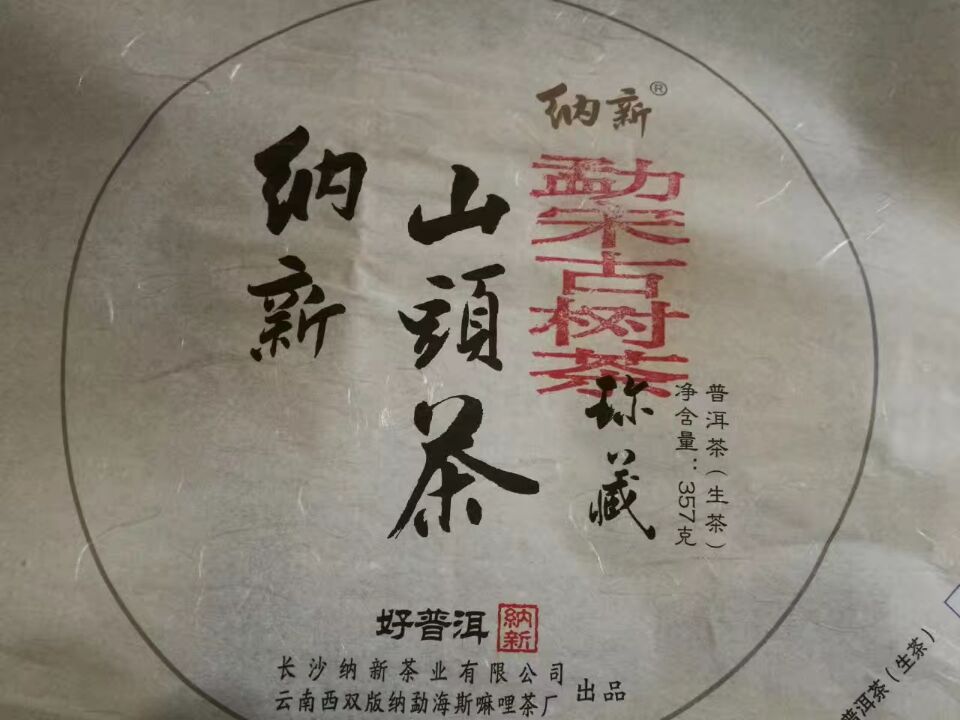 纳新®
勐宋古树茶
珍藏
普洱茶(生茶)
净含量:357克
山頭茶
纳新
好普洱
納新
长沙纳新茶业有限公司
云南西双版纳勐海斯嘛哩茶厂
出品
普洱茶(生茶)